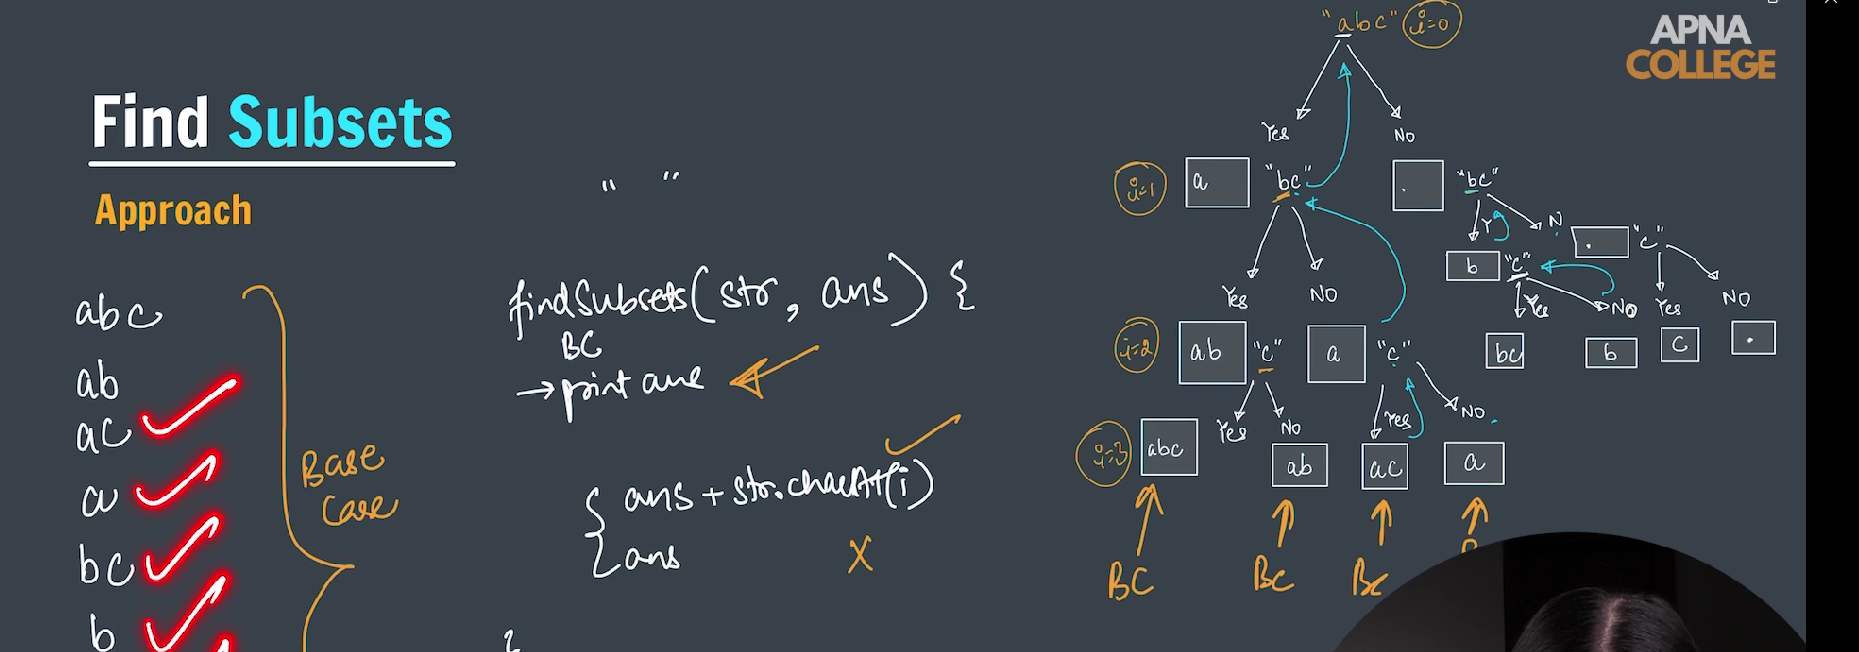 APNA
COLLEGE
Find Subsets
Approach
" "
abc
ab
ac
a
bc
b
Base
Case
findSubsets(str, ans) {
BC
→ print ans
{ ans + str.charAt(i)
ans
X
"abc" i=0
Yes No
i=1 a "bc" . "bc"
Y N . "c"
b "c"
Yes NO Yes NO Yes NO
i=2 ab "c" a "c" bc b c .
Yes No Yes No
i=3 abc ab ac a
BC BC BC